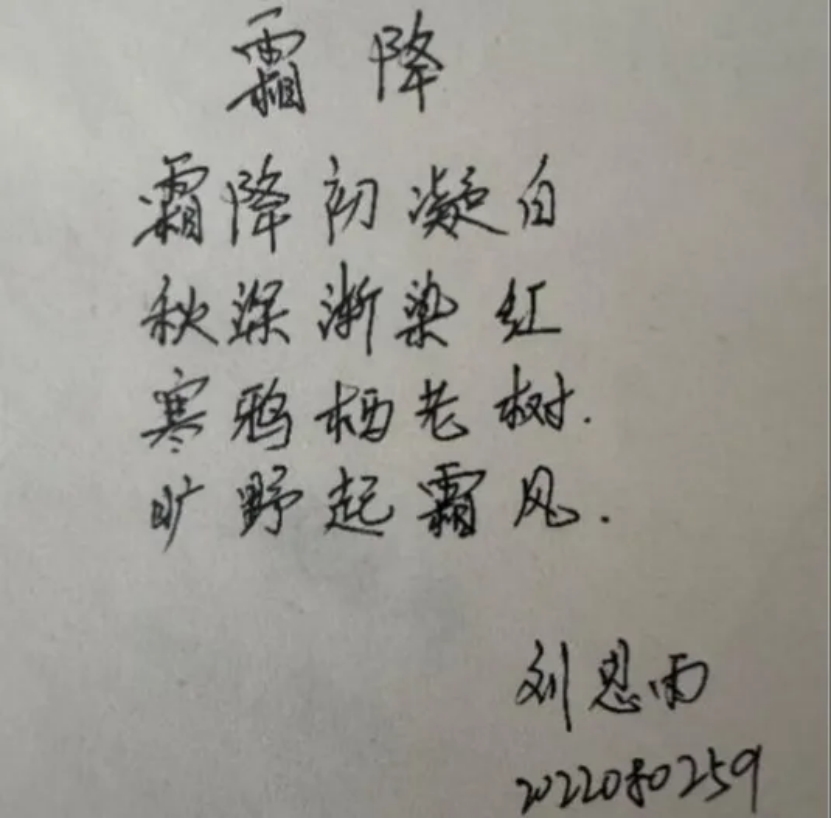 霜降
霜降初凝白
秋深渐染红
寒鸦栖老树.
旷野起霜风.
刘思雨
2022080259